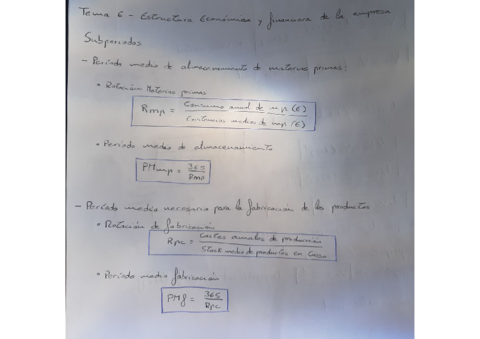 Tema 6 - Estructura Económica y financiera de la empresa
Subperiodos
- Período medio de almacenamiento de materias primas:
• Rotación Materias primas
Rmp = Consumo anual de m.p. (€) / Existencias medias de m.p. (€)
• Período medio de almacenamiento
PMmp = 365 / Rmp
- Período medio necesario para la fabricación de los productos
• Rotación de fabricación
Rpc = Costes anuales de produccion / Stock medio de productos en curso
• Período medio fabricación
PMf = 365 / Rpc